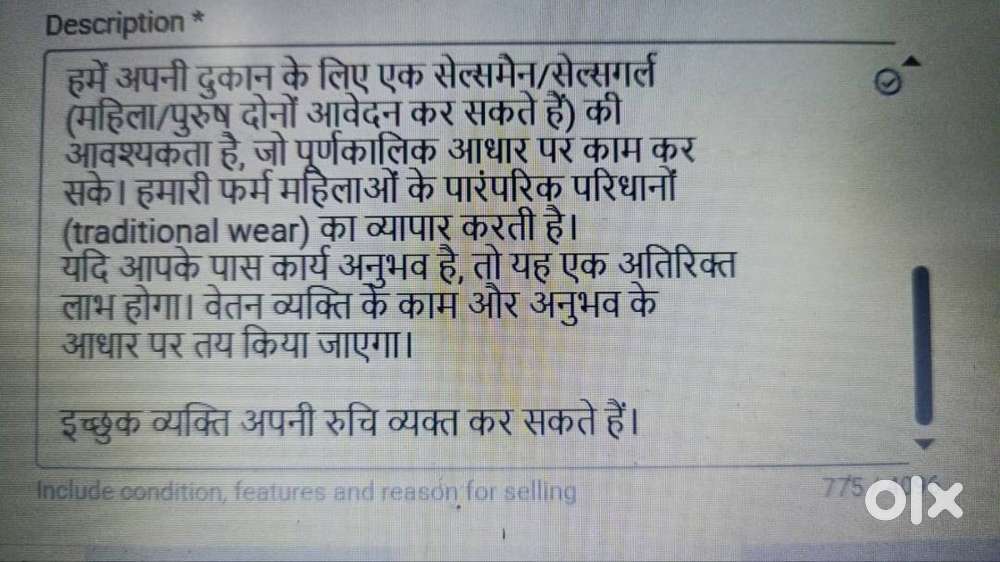 Description *
हमें अपनी दुकान के लिए एक सेल्समैन/सेल्सगर्ल
(महिला/पुरुष दोनों आवेदन कर सकते हैं) की
आवश्यकता है, जो पूर्णकालिक आधार पर काम कर
सके। हमारी फर्म महिलाओं के पारंपरिक परिधानों
(traditional wear) का व्यापार करती है।
यदि आपके पास कार्य अनुभव है, तो यह एक अतिरिक्त
लाभ होगा। वेतन व्यक्ति के काम और अनुभव के
आधार पर तय किया जाएगा।
इच्छुक व्यक्ति अपनी रुचि व्यक्त कर सकते हैं।
Include condition, features and reason for selling
775
olx